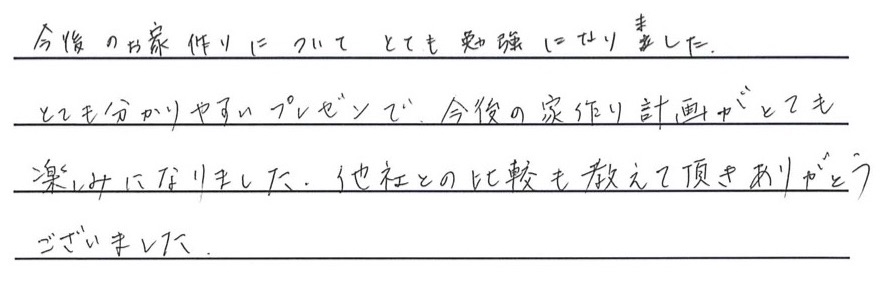 今後のお家作りについてとても勉強になりました.
とても分かりやすいプレゼンで、今後の家作り計画がとても
楽しみになりました. 他社との比較も教えて頂きありがとう
ございました.